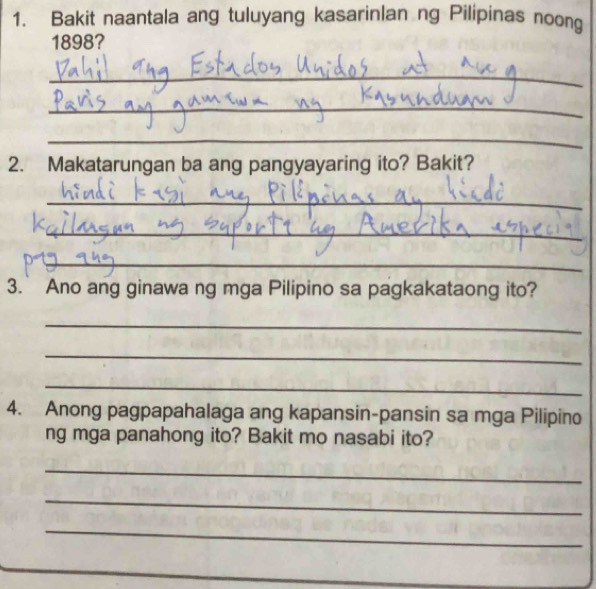 1. Bakit naantala ang tuluyang kasarinlan ng Pilipinas noong
1898?
Dahil ang Estados Unidos at ang
Paris ay gumawa ng kasunduan
2. Makatarungan ba ang pangyayaring ito? Bakit?
hindi kasi ang Pilipinas ay hindi
kailangan ng suporta ng Amerika especial
pag ang
3. Ano ang ginawa ng mga Pilipino sa pagkakataong ito?
4. Anong pagpapahalaga ang kapansin-pansin sa mga Pilipino
ng mga panahong ito? Bakit mo nasabi ito?